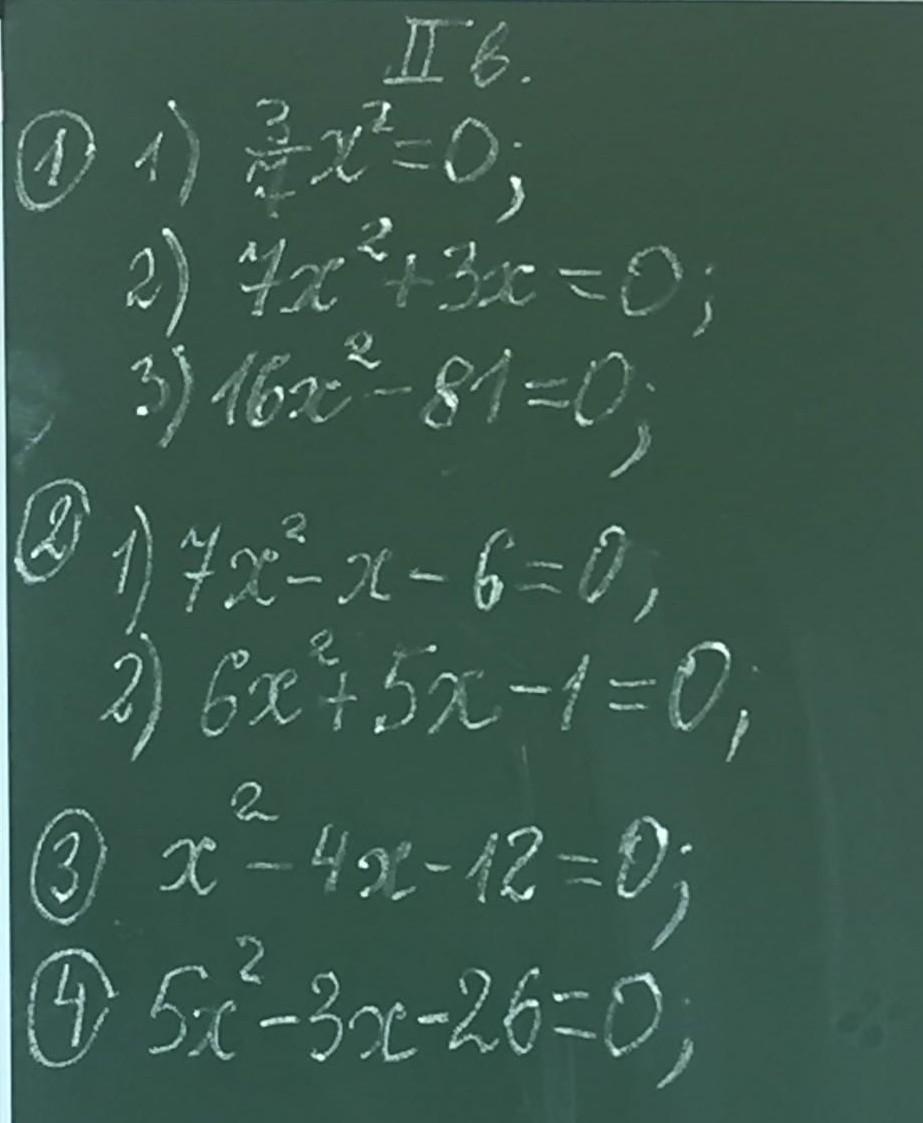 II в.
① 1) 3/7 x² = 0;
2) 7x² + 3x = 0;
3) 16x² - 81 = 0;
② 1) 7x² - x - 6 = 0,
2) 6x² + 5x - 1 = 0,
③ x² - 4x - 12 = 0;
④ 5x² - 3x - 26 = 0;